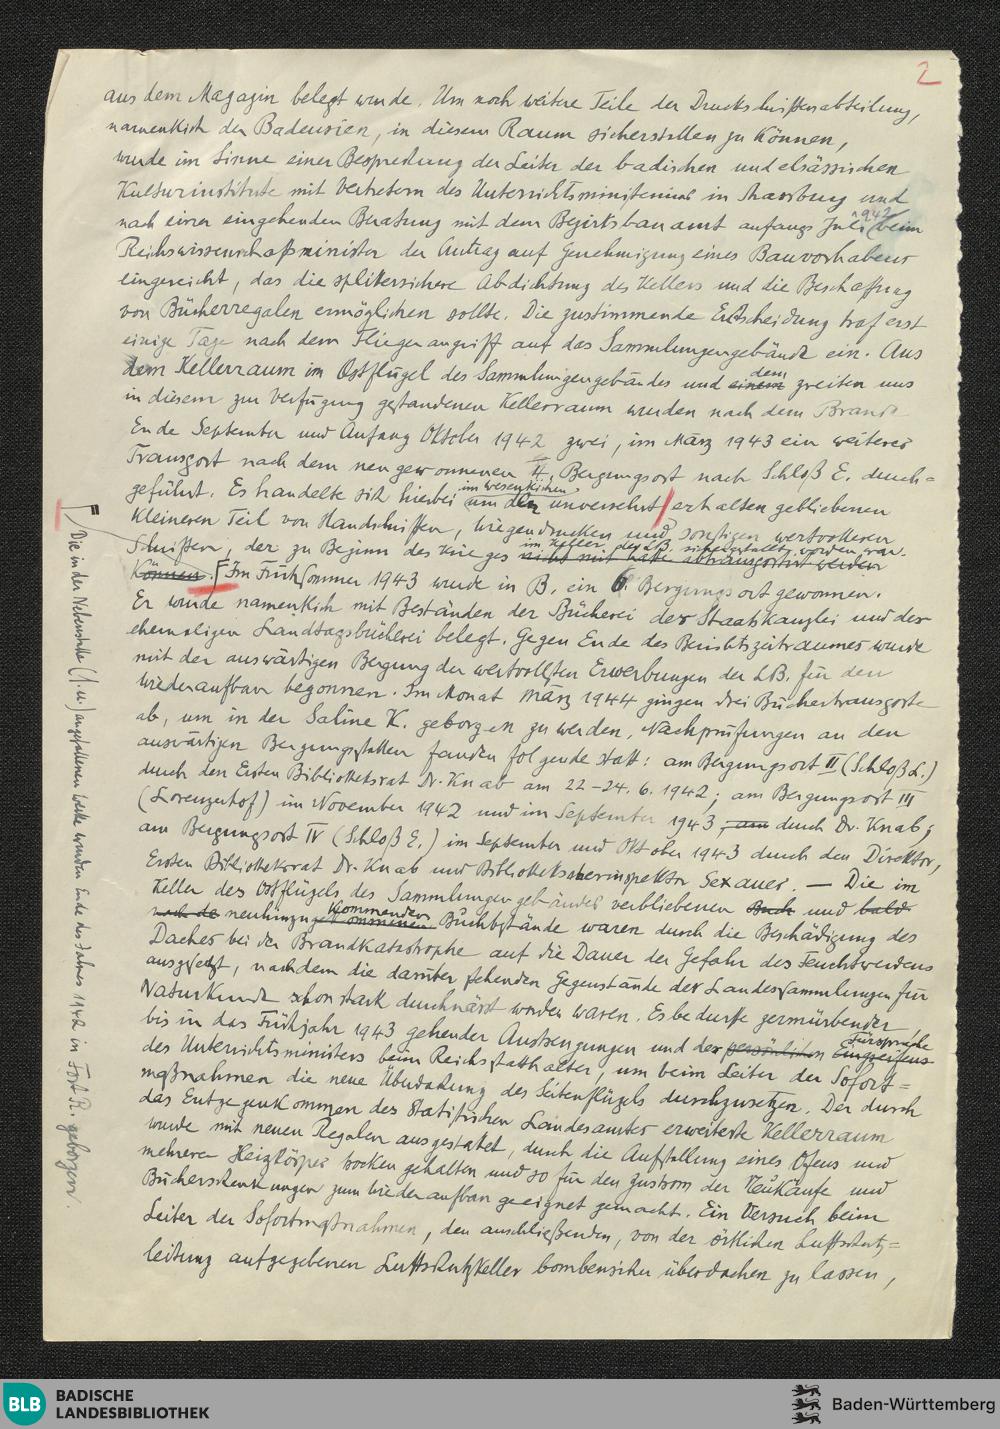 2
aus dem Magazin belegt wurde. Um noch weitere Teile der Druckschriftenabteilung,
namentlich der Badensien, in diesem Raum sicherstellen zu können,
wurde im Sinne einer Besprechung der Leiter der badischen und elsässischen
Kulturinstitute mit Vertretern des Unterrichtsministeriums in Strassburg und
nach einer eingehenden Beratung mit dem Bezirksbauamt anfangs Juli 1942 beim
Reichswissenschaftsminister der Antrag auf Genehmigung eines Bauvorhabens
eingereicht, das die splittersichere Abdichtung des Kellers und die Beschaffung
von Bücherregalen ermöglichen sollte. Die zustimmende Entscheidung traf erst
einige Tage nach dem Fliegerangriff auf das Sammlungengebäude ein. Aus
dem Kellerraum im Ostflügel des Sammlungengebäudes und einem dem zweiten uns
in diesem zur Verfügung gestandenen Kellerraum wurden nach dem Brand
Ende September und Anfang Oktober 1942 zwei, im März 1943 ein weiterer
Transport nach dem neu gewonnenen 4. Bergungsort nach Schloß E. durch=
geführt. Es handelte sich hierbei im wesentlichen um den unversehrt erhalten gebliebenen
kleineren Teil von Handschriften, Wiegendrucken und sonstigen wertvolleren
Schriften, der zu Beginn des Krieges im Keller des O. sichergestellt worden war.
nicht mit hatte abtransportiert werden
können. Im Frühsommer 1943 wurde in B. ein 6. Bergungsort gewonnen.
Er wurde namentlich mit Beständen der Bücherei der Staatskanzlei und der
ehemaligen Landtagsbücherei belegt. Gegen Ende des Berichtszeitraumes wurde
mit der auswärtigen Bergung der wertvollsten Erwerbungen der LB. für den
Wiederaufbau begonnen. Im Monat März 1944 gingen drei Büchertransporte
ab, um in der Saline K. geborgen zu werden. Nachprüfungen an den
auswärtigen Bergungsstätten fanden folgende statt: am Bergungsort II (Schloß L.)
durch den Ersten Bibliotheksrat Dr. Knab am 22-24. 6. 1942; am Bergungsort III
(Lorenzenhof) im November 1942 und im September 1943, am durch Dr. Knab;
am Bergungsort IV (Schloß E.) im September und Oktober 1943 durch den Direktor,
Ersten Bibliotheksrat Dr. Knab und Bibliotheksoberinspektor Sexauer. — Die im
Keller des Ostflügels des Sammlungengebäudes verbliebenen Buch und bald
nach de neuhinzugekommenen kommenden Buchbestände waren durch die Beschädigung des
Daches bei der Brandkatastrophe auf die Dauer der Gefahr des Feuchtwerdens
ausgesetzt, nachdem die darüber stehenden Gegenstände der Landessammlungen für
Naturkunde schon stark durchnässt worden waren. Es bedurfte zermürbender,
bis in das Frühjahr 1943 gehender Anstrengungen und der persönlichen Eingreifens Fürsprache
des Unterrichtsministers beim Reichsstatthalter, um beim Leiter der Sofort=
maßnahmen die neue Überdachung des Seitenflügels durchzusetzen. Der durch
das Entgegenkommen des Statistischen Landesamtes erweiterte Kellerraum
wurde mit neuen Regalen ausgestattet, durch die Aufstellung eines Ofens und
mehrerer Heizkörper trocken gehalten und so für den Zustrom der Neukäufe und
Bücherschenkungen zum Wiederaufbau geeignet gemacht. Ein Versuch beim
Leiter der Sofortmaßnahmen, den anschließenden, von der örtlichen Luftschutz=
leitung aufgegebenen Luftschutzkeller bombensicher überdachen zu lassen,
Die in der Nebenstelle (s.u.) angefallenen Werke wurden Ende des Jahres 1942 in Fort R. geborgen.
BLB
BADISCHE
LANDESBIBLIOTHEK
Baden-Württemberg